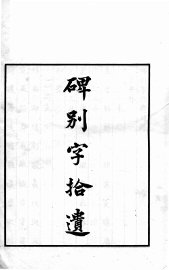 碑别字拾遺